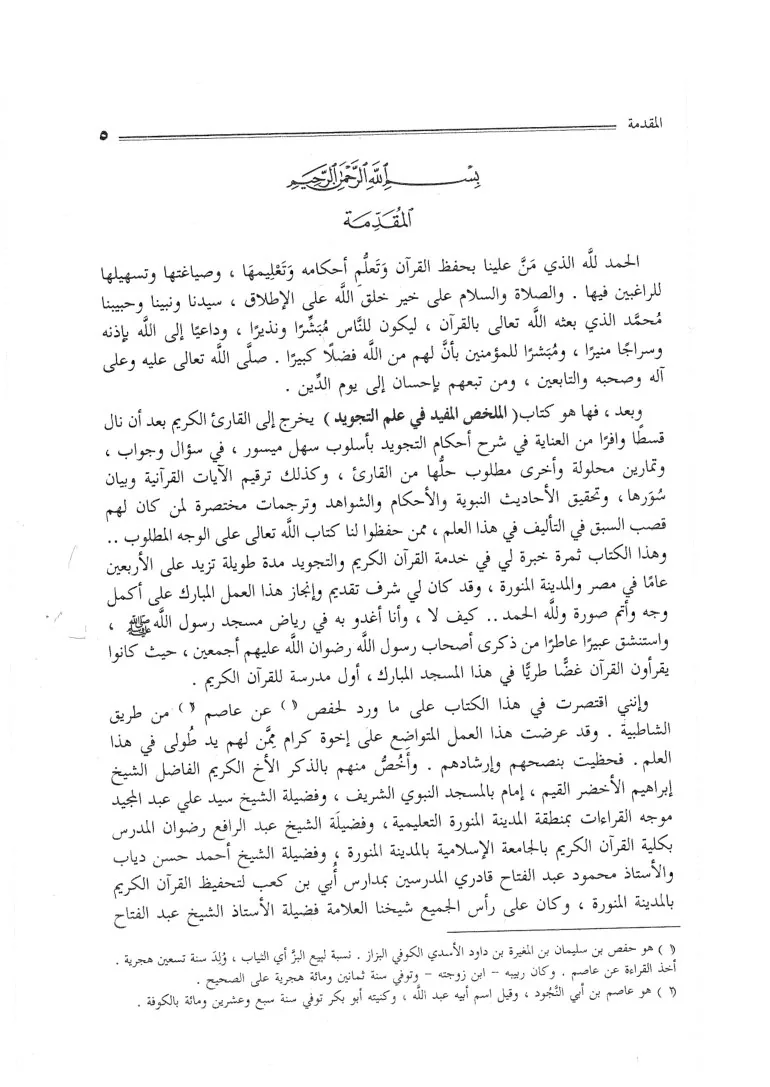 المقدمة
٥
بِسْمِ ٱللَّهِ ٱلرَّحْمَٰنِ ٱلرَّحِيمِ
المُقَدِّمة
الحمد للَّه الذي مَنَّ علينا بحفظ القرآن وَتَعلُّمِ أحكامه وَتَعْلِيمهَا ، وصياغتها وتسهيلها
للراغبين فيها . والصلاة والسلام على خير خلق اللَّه على الإطلاق ، سيدنا ونبينا وحبيبنا
مُحمَّد الذي بعثه اللَّه تعالى بالقرآن ، ليكون للنَّاس مُبَشِّرًا ونذيرًا ، وداعيًا إلى اللَّه بإذنه
وسراجًا منيرًا ، ومُبَشرًا للمؤمنين بأنَّ لهم من اللَّه فضلًا كبيرًا . صلَّى اللَّه تعالى عليه وعلى
آله وصحبه والتابعين ، ومن تبعهم بإحسان إلى يوم الدِّين .
وبعد ، فها هو كتاب( الملخص المفيد في علم التجويد ) يخرج إلى القارئ الكريم بعد أن نال
قسطًا وافرًا من العناية في شرح أحكام التجويد بأسلوب سهل ميسور ، في سؤال وجواب ،
وتمارين محلولة وأخرى مطلوب حلُّها من القارئ ، وكذلك ترقيم الآيات القرآنية وبيان
سُوَرها، وتحقيق الأحاديث النبوية والأحكام والشواهد وترجمات مختصرة لمن كان لهم
قصب السبق في التأليف في هذا العلم ، ممن حفظوا لنا كتاب اللَّه تعالى على الوجه المطلوب ..
وهذا الكتاب ثمرة خبرة لي في خدمة القرآن الكريم والتجويد مدة طويلة تزيد على الأربعين
عامًا في مصر والمدينة المنورة ، وقد كان لي شرف تقديم وإنجاز هذا العمل المبارك على أكمل
وجه وأتم صورة وللَّه الحمد .. كيف لا ، وأنا أغدو به في رياض مسجد رسول اللَّه ﷺ ،
واستنشق عبيرًا عاطرًا من ذكرى أصحاب رسول اللَّه رضوان اللَّه عليهم أجمعين ، حيث كانوا
يقرأون القرآن غضًّا طريًّا في هذا المسجد المبارك، أول مدرسة للقرآن الكريم .
وإنني اقتصرت في هذا الكتاب على ما ورد لحفص (١) عن عاصم (٢) من طريق
الشاطبية . وقد عرضت هذا العمل المتواضع على إخوة كرام مِمَّن لهم يد طُولى في هذا
العلم . فحظيت بنصحهم وإرشادهم . وأَخُصُّ منهم بالذكر الأخ الكريم الفاضل الشيخ
إبراهيم الأخضر القيم ، إمام بالمسجد النبوي الشريف ، وفضيلة الشيخ سيد علي عبد المجيد
موجه القراءات بمنطقة المدينة المنورة التعليمية ، وفضيلَة الشيخ عبد الرافع رضوان المدرس
بكلية القرآن الكريم بالجامعة الإسلامية بالمدينة المنورة ، وفضيلة الشيخ أحمد حسن دياب
والأستاذ محمود عبد الفتاح قادري المدرسين بمدارس أُبي بن كعب لتحفيظ القرآن الكريم
بالمدينة المنورة ، وكان على رأس الجميع شيخنا العلامة فضيلة الأستاذ الشيخ عبد الفتاح
(١) هو حفص بن سليمان بن المغيرة بن داود الأسدي الكوفي البزاز . نسبة لبيع البزِّ أي الثياب ، وُلِدَ سنة تسعين هجرية .
أخذ القراءة عن عاصم . وكان ربيبه – ابن زوجته – وتوفي سنة ثمانين ومائة هجرية على الصحيح .
(٢) هو عاصم بن أبي النَّجُود ، وقيل اسم أبيه عبد اللَّه ، وكنيته أبو بكر توفي سنة سبع وعشرين ومائة بالكوفة .